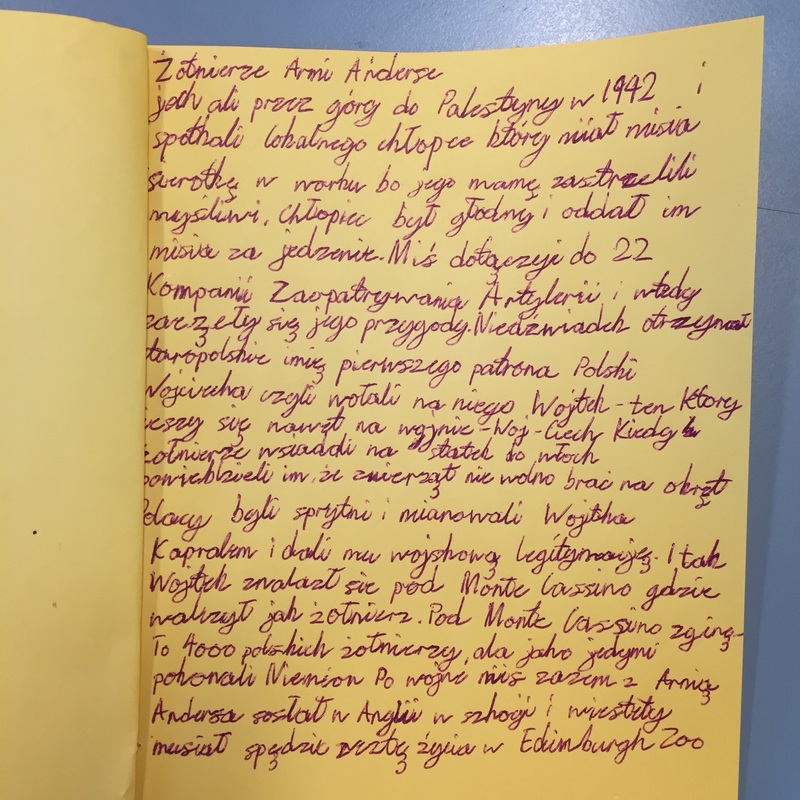 Żołnierze Armi Anderse
jechali przez góry do Palestyny w 1942 i
spotkali lokalnego chłopce który miał misia
sierotkę w worku bo jego mamę zastrzelili
myśliwi. Chłopiec był głodny i oddał im
misia za jedzenie. Miś dołączeje do 22
Kompanii Zaopatrywania Artylerii i wtedy
zaczęły się jego przygody. Niedźwiadek otrzymał
staropolskie imię pierwszego patrona Polski
Wojciecha czyli wołali na niego Wojtek - ten który
cieszy się nawet na wojnie - Woj - Ciech Kiedy
żołnierze wsiaddi na statek do włoch
powiedzieli im, że zwierząt nie wolno brać na okręt
Polacy byli sprytni i mianowali Wojtka
Kapralem i dali mu wojskową legitymację. I tak
Wojtek znalazł sie pod Monte Cassino gdzie
walczył jak żołnierz. Pod Monte Cassino zginę-
To 4000 polskich żołnierzy, ala jako jedymi
pokonali Niemcon Po wojne miś zazem z Armią
Andersa został w Anglii w szkocji i niestety
musiał spędzić resztę życia w Edimburgh Zoo